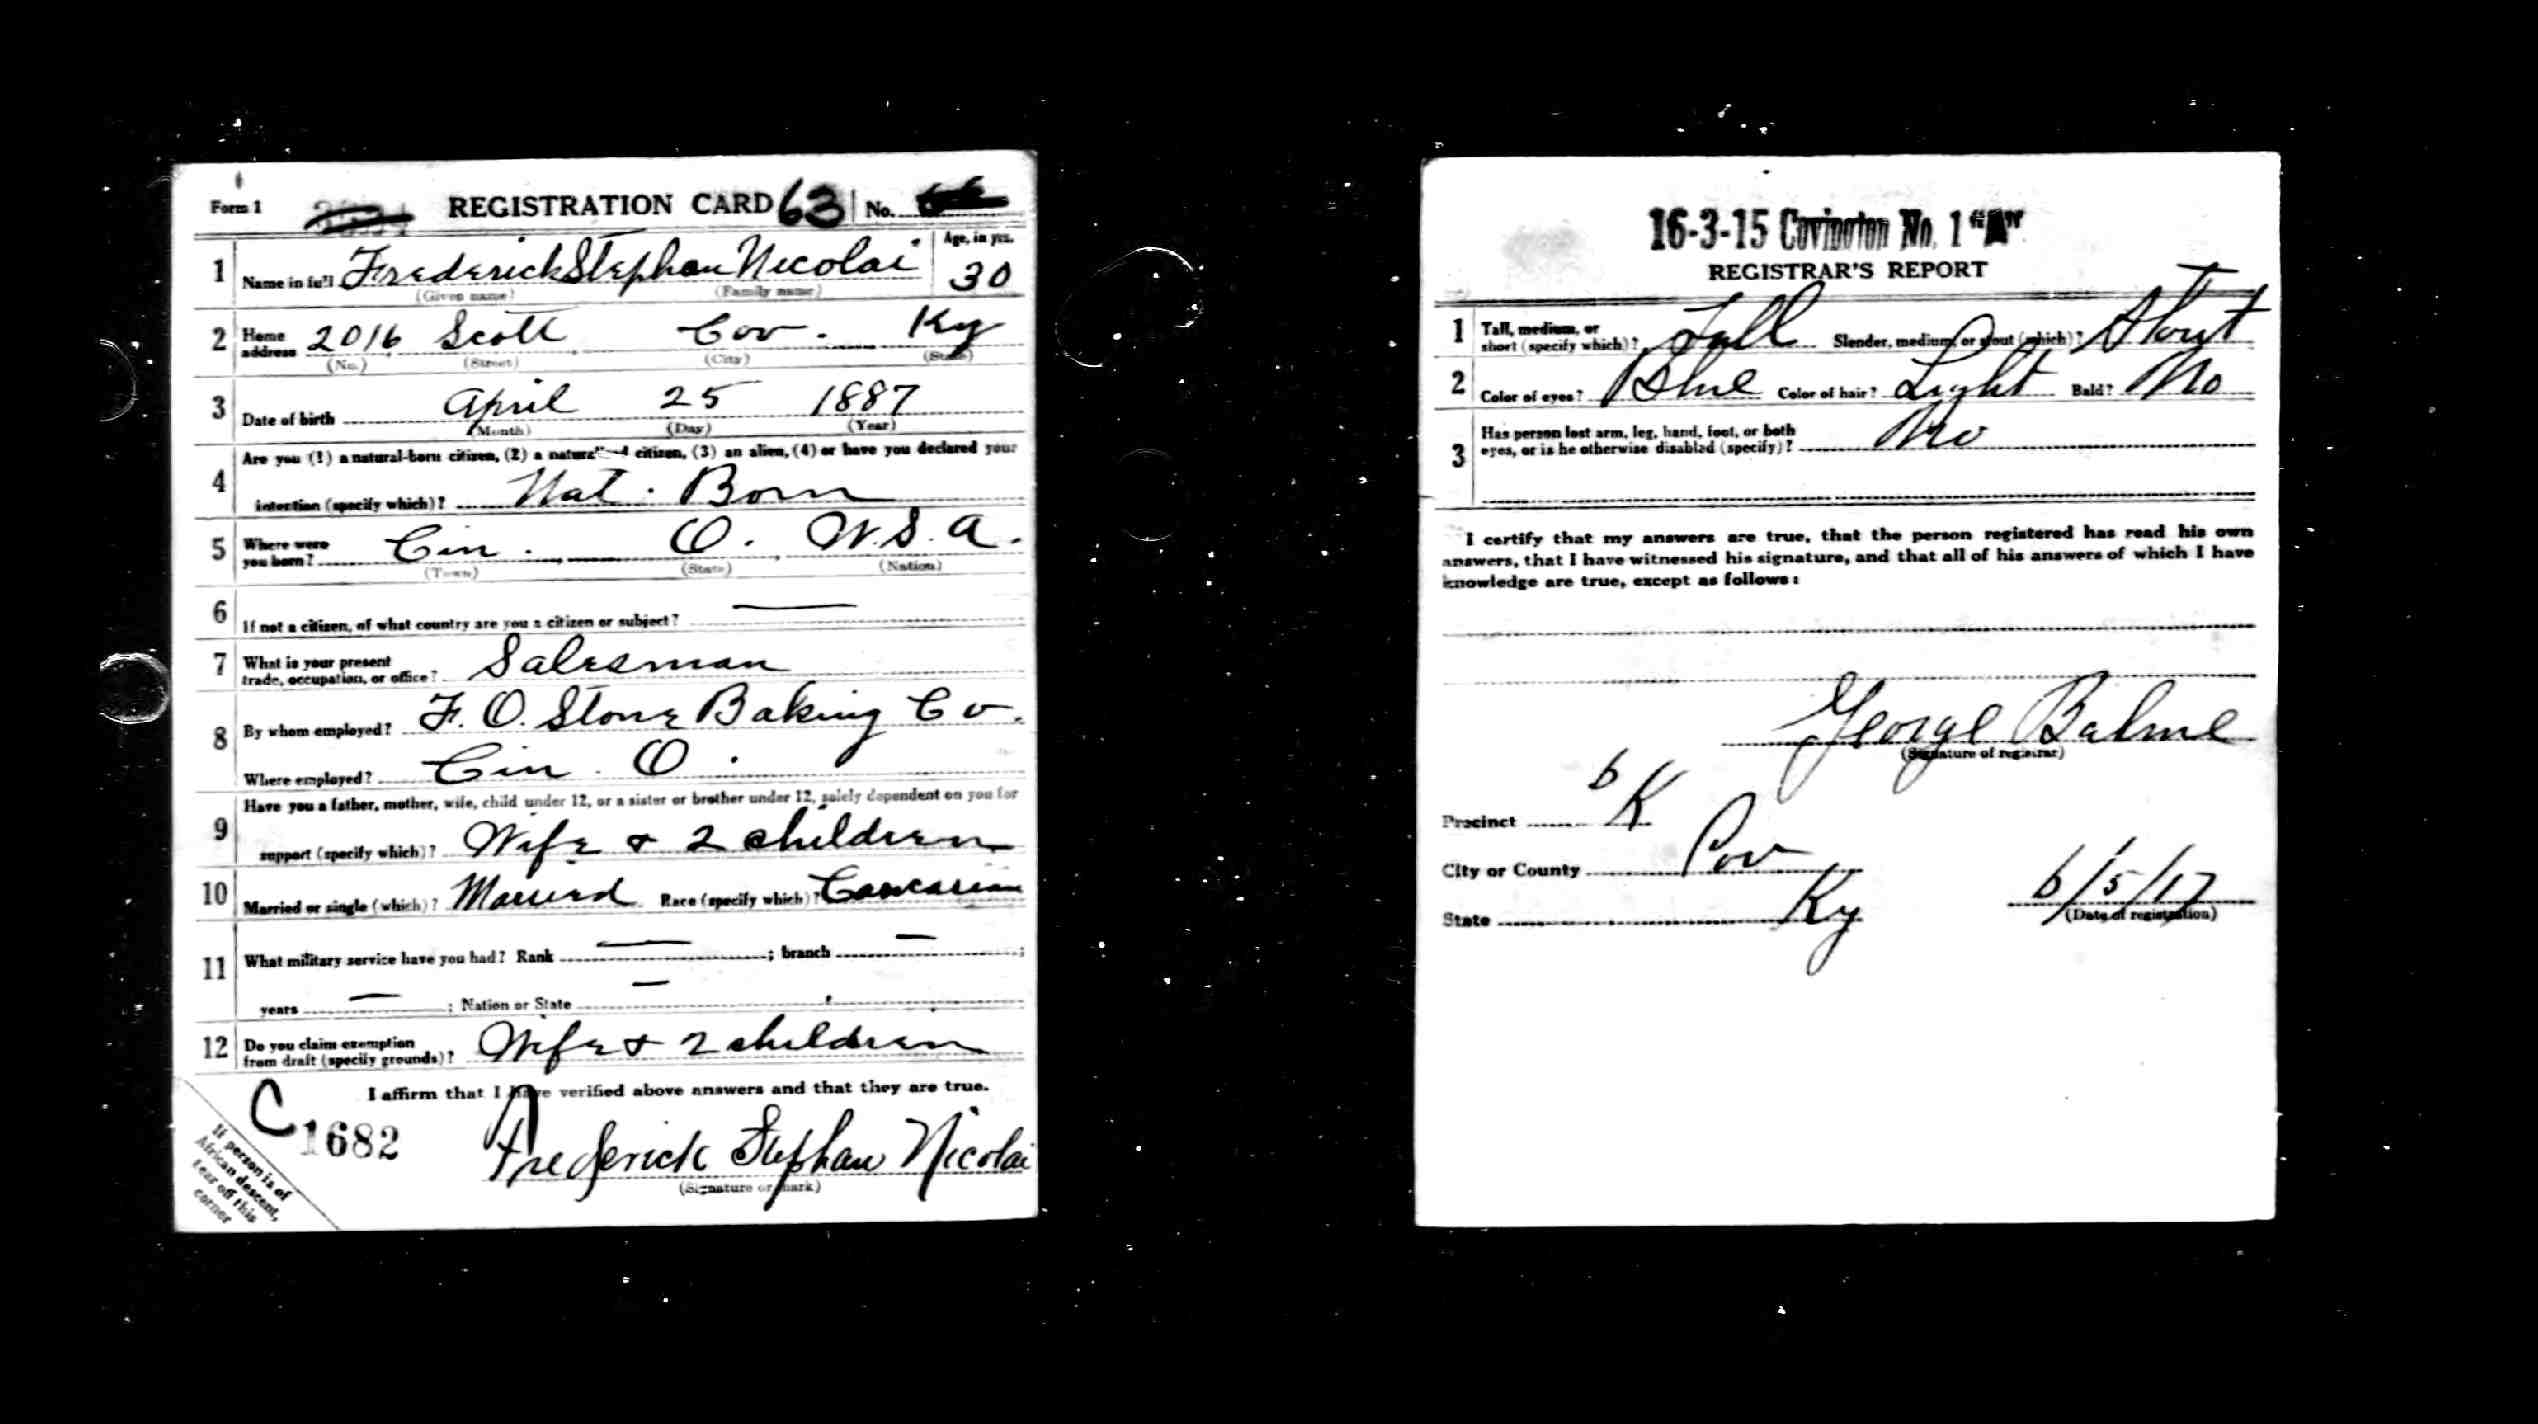 Form 1 REGISTRATION CARD 63 No.
1 Name in full Frederick Stephan Nicolai Age, in yrs. 30
(Given name) (Family name)
2 Home address 2016 Scott Cov. Ky
(No.) (Street) (City) (State)
3 Date of birth April 25 1887
(Month) (Day) (Year)
4 Are you (1) a natural-born citizen, (2) a naturalized citizen, (3) an alien, (4) or have you declared your
intention (specify which)? Nat. Born
5 Where were you born? Cin. O. U.S.A.
(Town) (State) (Nation)
6 If not a citizen, of what country are you a citizen or subject? —
7 What is your present
trade, occupation, or office? Salesman
8 By whom employed? F. O. Stone Baking Co.
Where employed? Cin. O.
9 Have you a father, mother, wife, child under 12, or a sister or brother under 12, solely dependent on you for
support (specify which)? Wife & 2 children
10 Married or single (which)? Married Race (specify which)? Caucasian
11 What military service have you had? Rank — ; branch — ;
years — ; Nation or State —
12 Do you claim exemption
from draft (specify grounds)? Wife & 2 children
I affirm that I have verified above answers and that they are true.
C 1682
Frederick Stephan Nicolai
(Signature or mark)
If person is of
African descent,
tear off this
corner
16-3-15 Covington No. 1 "A"
REGISTRAR'S REPORT
1 Tall, medium, or
short (specify which)? Tall Slender, medium, or stout (which)? Stout
2 Color of eyes? Blue Color of hair? Light Bald? No
3 Has person lost arm, leg, hand, foot, or both
eyes, or is he otherwise disabled (specify)? No
I certify that my answers are true, that the person registered has read his own
answers, that I have witnessed his signature, and that all of his answers of which I have
knowledge are true, except as follows:
George Balme
(Signature of registrar)
Precinct 6 K
City or County Cov
State Ky 6/5/17
(Date of registration)